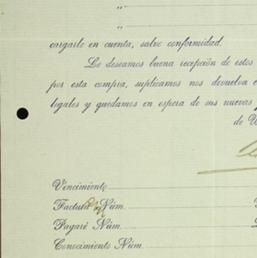 "
"
cargarle en cuenta, salvo conformidad.
Le deseamos buena recepción de estos
por esta compra, suplicamos nos devuelva
legales y quedamos en espera de sus nuevas
de V
Vencimiento
Factura Núm.
Pagaré Núm.
Conocimiento Núm.